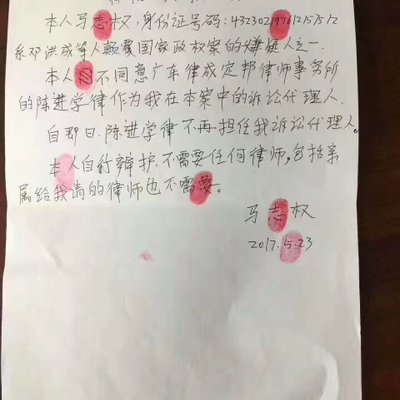 本人马志权,身份证号码:
系邓洪成等人颠覆国家政权案的嫌疑人之一.
本人不同意广东律成定邦律师事务所
的陈进学律作为我在本案中的诉讼代理人.
自即日,陈进学律不再担任我诉讼代理人。
本人自行辩护,不需要任何律师,包括亲
属给我请的律师也不需要。
马志权
2017.5.23